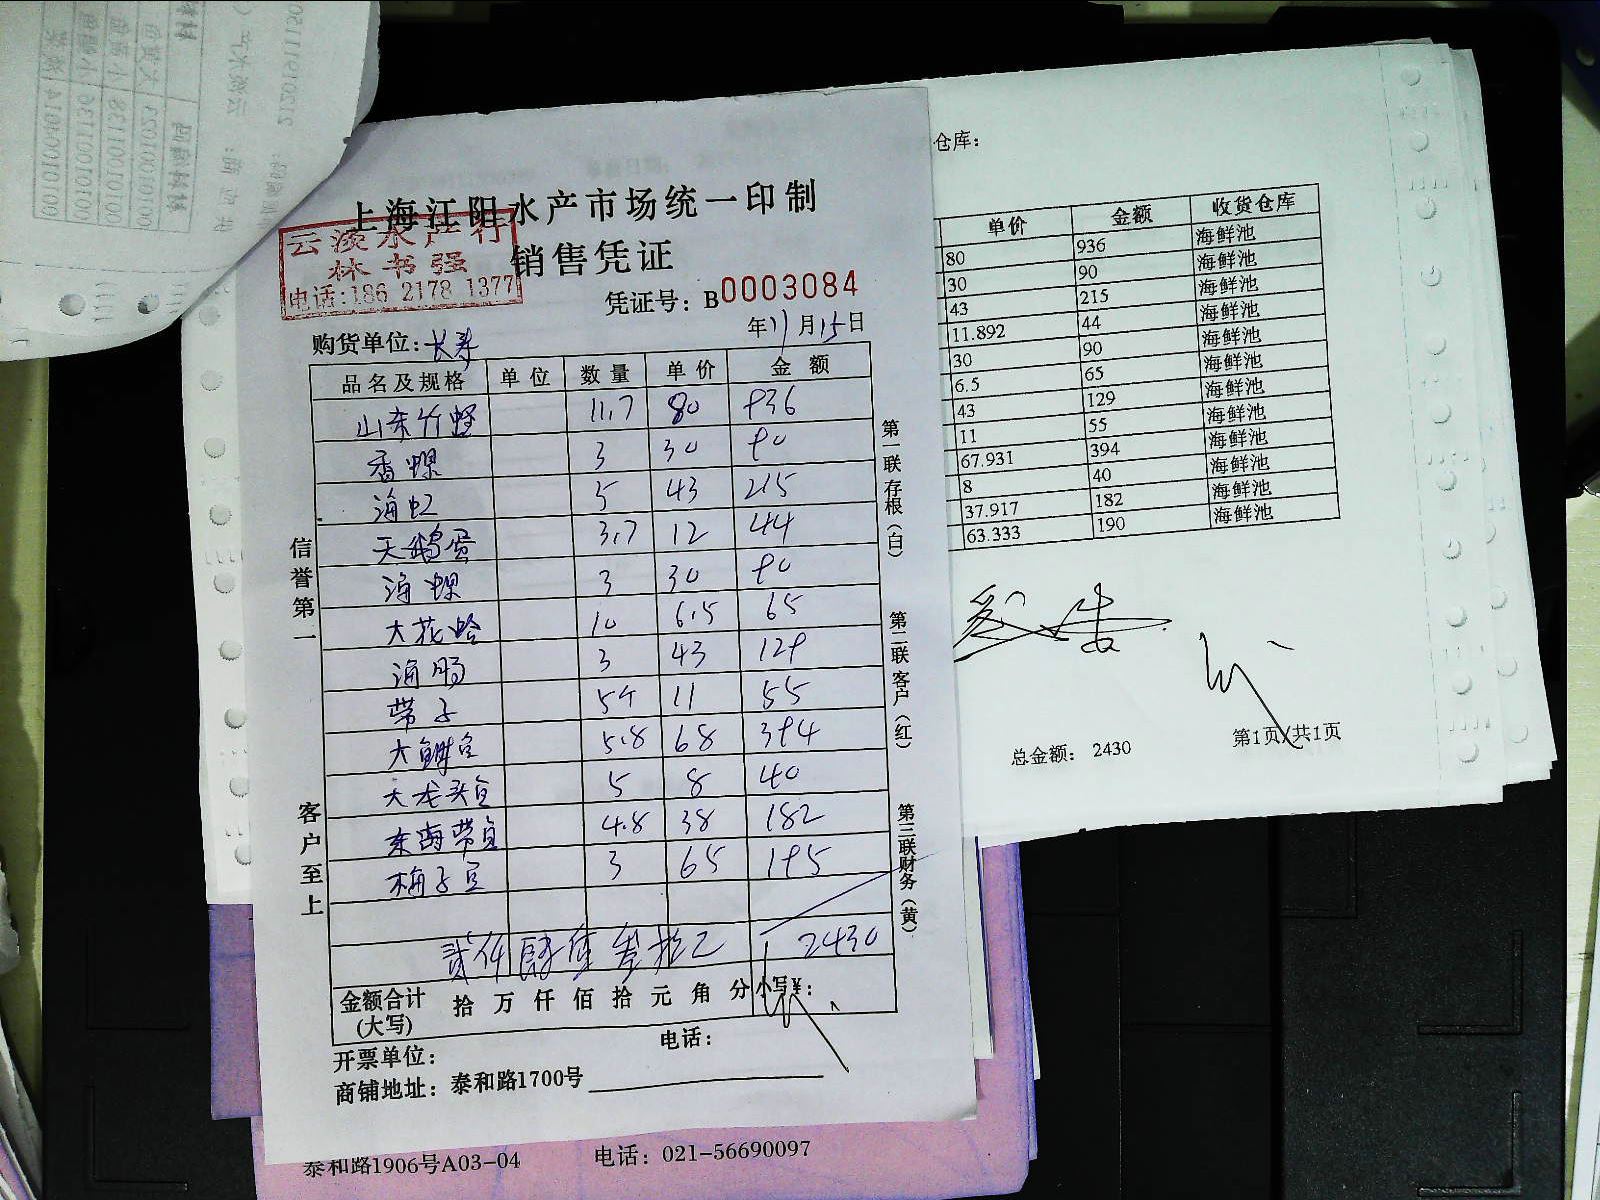 上海江阳水产市场统一印制
云淡水产行
林书强
电话:186 2178 1377
销售凭证
凭证号: B0003084
购货单位:长寿
年11月15日
品名及规格 单位 数量 单价 金额
山东竹蛏 11.7 80 936
香螺 3 30 90
海虹 5 43 215
天鹅蛋 3.7 12 44
海螺 3 30 90
大花蛤 10 6.5 65
海肠 3 43 129
带子 5个 11 55
大鲥鱼 5.8 68 394
大龙头鱼 5 8 40
东海带鱼 4.8 38 182
梅子鱼 3 65 195
贰仟肆佰叁拾元 2430
金额合计(大写) 拾 万 仟 佰 拾 元 角 分 小写¥:
开票单位: 电话:
商铺地址: 泰和路1700号
信誉第一
客户至上
第一联存根(白)
第二联客户(红)
第三联财务(黄)
泰和路1906号A03-04 电话: 021-56690097
仓库:
单价 金额 收货仓库
80 936 海鲜池
30 90 海鲜池
43 215 海鲜池
11.892 44 海鲜池
30 90 海鲜池
6.5 65 海鲜池
43 129 海鲜池
11 55 海鲜池
67.931 394 海鲜池
8 40 海鲜池
37.917 182 海鲜池
63.333 190 海鲜池
总金额: 2430
第1页/共1页